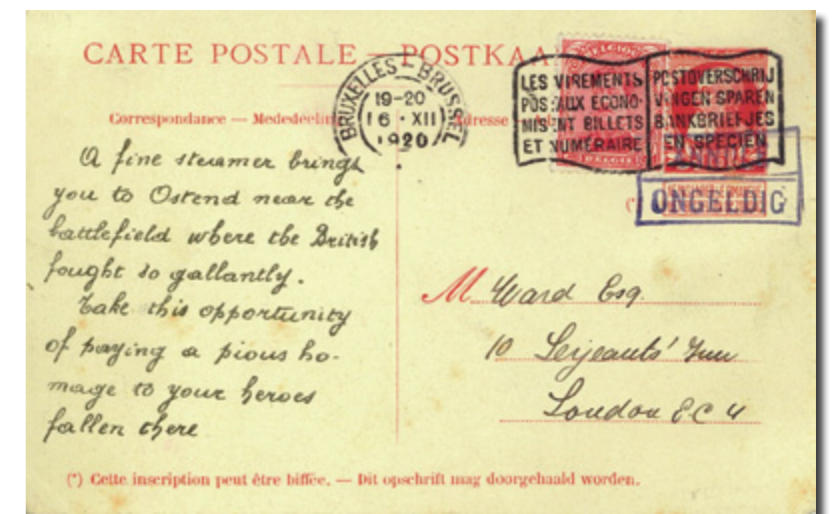 CARTE POSTALE — POSTKAA
BRUXELLES - BRUSSEL
19-20
16 · XII
1920
LES VIREMENTS
POSTAUX ECONO-
MISENT BILLETS
ET NUMÉRAIRE
POSTOVERSCHRIJ
VINGEN SPAREN
BANKBRIEFJES
EN SPECIEN
BELGIQUE
BELGIË
ONGELDIG
Correspondance — Mededeelin
Adresse
A fine steamer brings
you to Ostend near the
battlefield where the British
fought so gallantly.
Take this opportunity
of paying a pious ho-
mage to your heroes
fallen there
M Ward Esq.
10 Serjeants' Inn
London EC 4
(*) Cette inscription peut être biffée. — Dit opschrift mag doorgehaald worden.